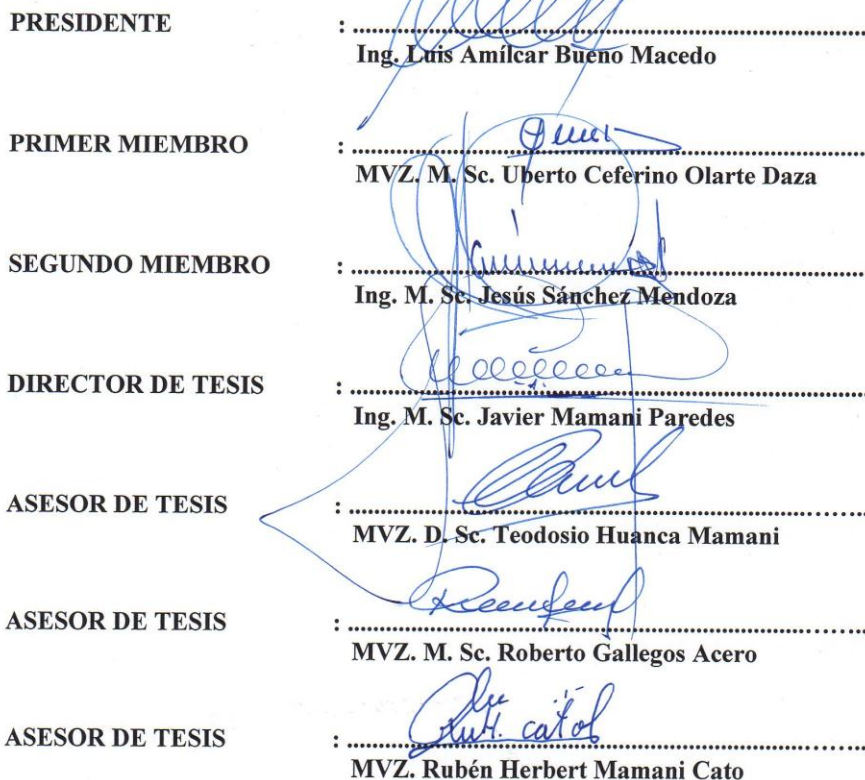 PRESIDENTE : ........................................
Ing. Luis Amílcar Bueno Macedo
PRIMER MIEMBRO : ........................................
MVZ. M. Sc. Uberto Ceferino Olarte Daza
SEGUNDO MIEMBRO : ........................................
Ing. M. Sc. Jesús Sánchez Mendoza
DIRECTOR DE TESIS : ........................................
Ing. M. Sc. Javier Mamani Paredes
ASESOR DE TESIS : ........................................
MVZ. D. Sc. Teodosio Huanca Mamani
ASESOR DE TESIS : ........................................
MVZ. M. Sc. Roberto Gallegos Acero
ASESOR DE TESIS : ........................................
MVZ. Rubén Herbert Mamani Cato